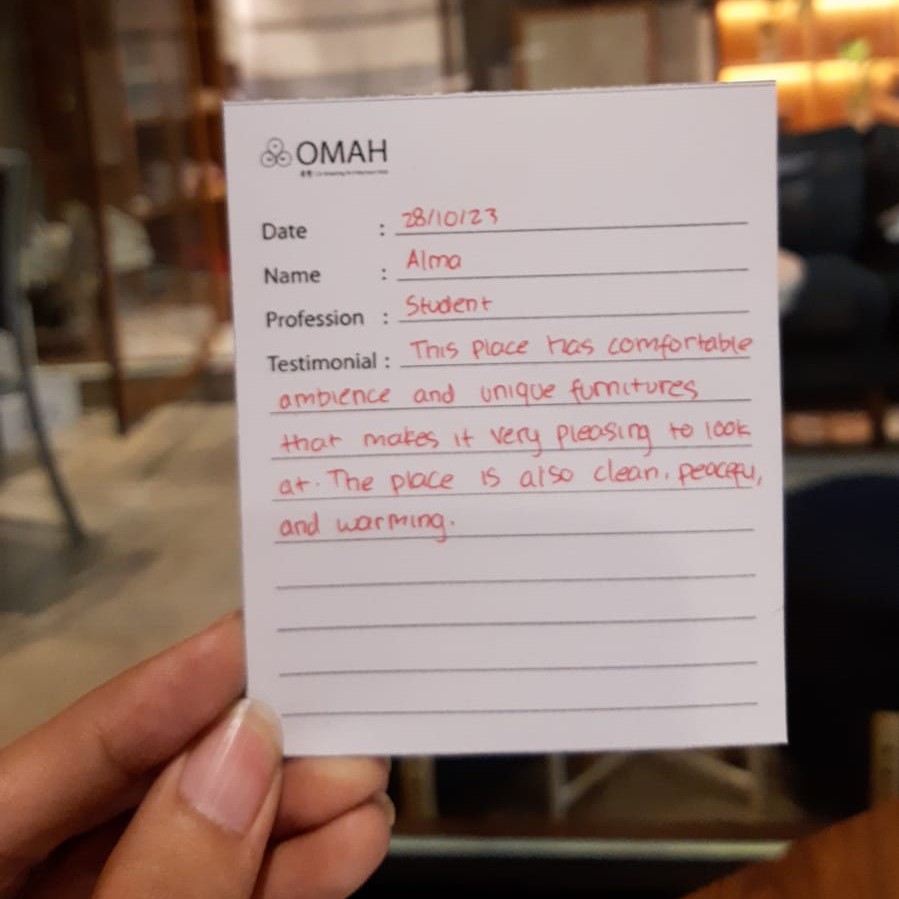 OMAH
Date : 28/10/23
Name : Alma
Profession : Student
Testimonial : This place has comfortable
ambience and unique furnitures
that makes it very pleasing to look
at. The place is also clean, peaceful,
and warming.